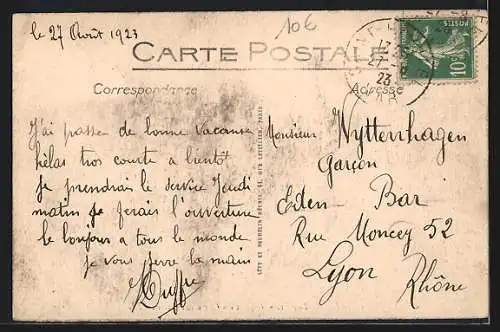 le 27 Août 1923
10€
CARTE POSTALE
Correspondance
Adresse
POSTES
10c
27
23
J'ai passer de bonne vacanse
hélas tros courte a bientôt
je prendrais le service Jeudi
matin je ferais l'ouverture
le bonjour a tous le monde
je vous serre la main
Monsieur Wyttenhagen
Garçon
Eden-Bar
Rue Moncey 52
Lyon
Rhône
LEVY ET NEURDEIN RÉUNIS, 44, RUE LETELLIER, PARIS